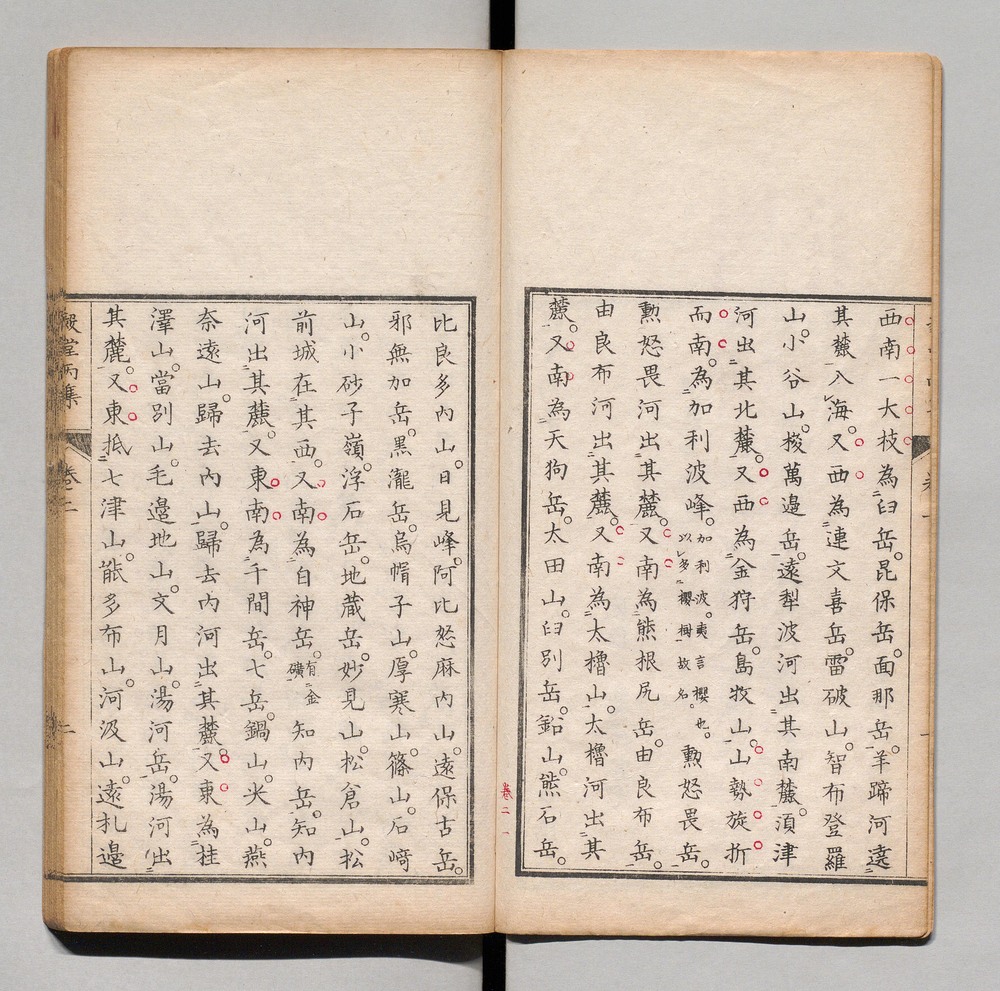 西南一大枝為臼岳。昆保岳。面那岳。羊蹄河遶
其麓入海。又西為連文喜岳。雷破山。智布登羅
山。小谷山。梭萬邊岳。遠犁波河出其南麓。湏津
河出其北麓。又西為金狩岳。島牧山。山勢旋折
而南。為加利波峰。
加利波。夷言櫻也。
以多櫻樹故名。
勲怒畏岳。
勲怒畏河出其麓。又南為熊根尻岳。由良布岳。
由良布河出其麓。又南為太櫓山。太櫓河出其
麓。又南為天狗岳。太田山。臼別岳。鉛山。熊石岳。
卷二 一
比良多內山。日見峰。阿比怒麻內山。遠保古岳。
邪無加岳。黒瀧岳。烏帽子山。厚寒山。篠山。石﨑
山。小砂子嶺。浮石岳。地蔵岳。妙見山。松倉山。松
前城在其西。又南為白神岳。
有金
礦
知內岳。知內
河出其麓。又東南為千間岳。七岳。鍋山。尖山。燕
奈遠山。歸去內山。歸去內河出其麓。又東為桂
澤山。當別山。毛邊地山。文月山。湯河岳。湯河出
其麓。又東抵七津山。㡯多布山。河汲山。遠札邊
卷二
二